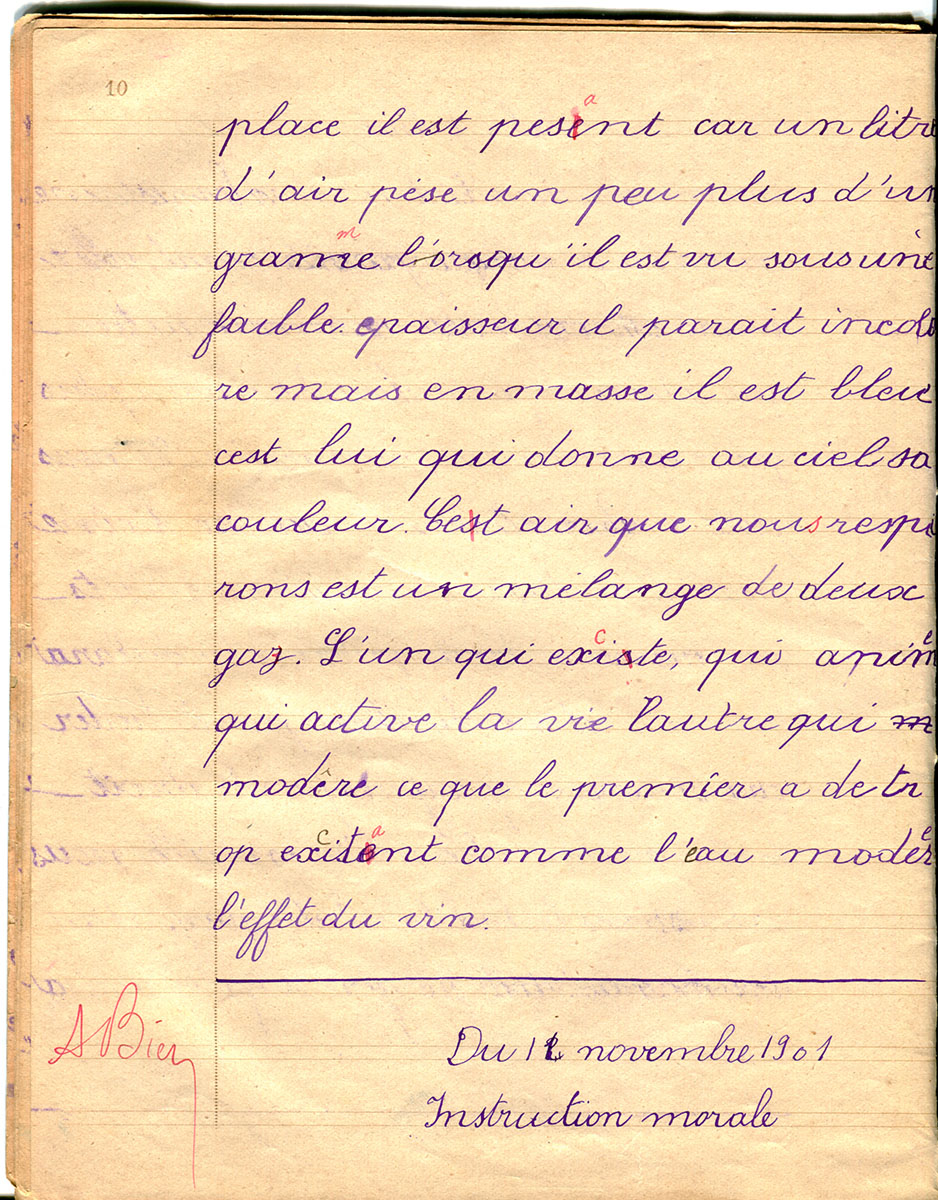 10
place il est pesant car un litre
d'air pése un peu plus d'un
gramme l'orsqu'il est vu sous une
faible epaisseur il parait incolo
re mais en masse il est bleu
cest lui qui donne au ciel sa
couleur. Cest air que nous respi
rons est un mélange de deux
gaz. L'un qui excite, qui anime
qui active la vie lautre qui m
modère ce que le premier a de tr
op excitant comme l'eau modère
l'effet du vin.
A Bier
Du 12 novembre 1901
Instruction morale